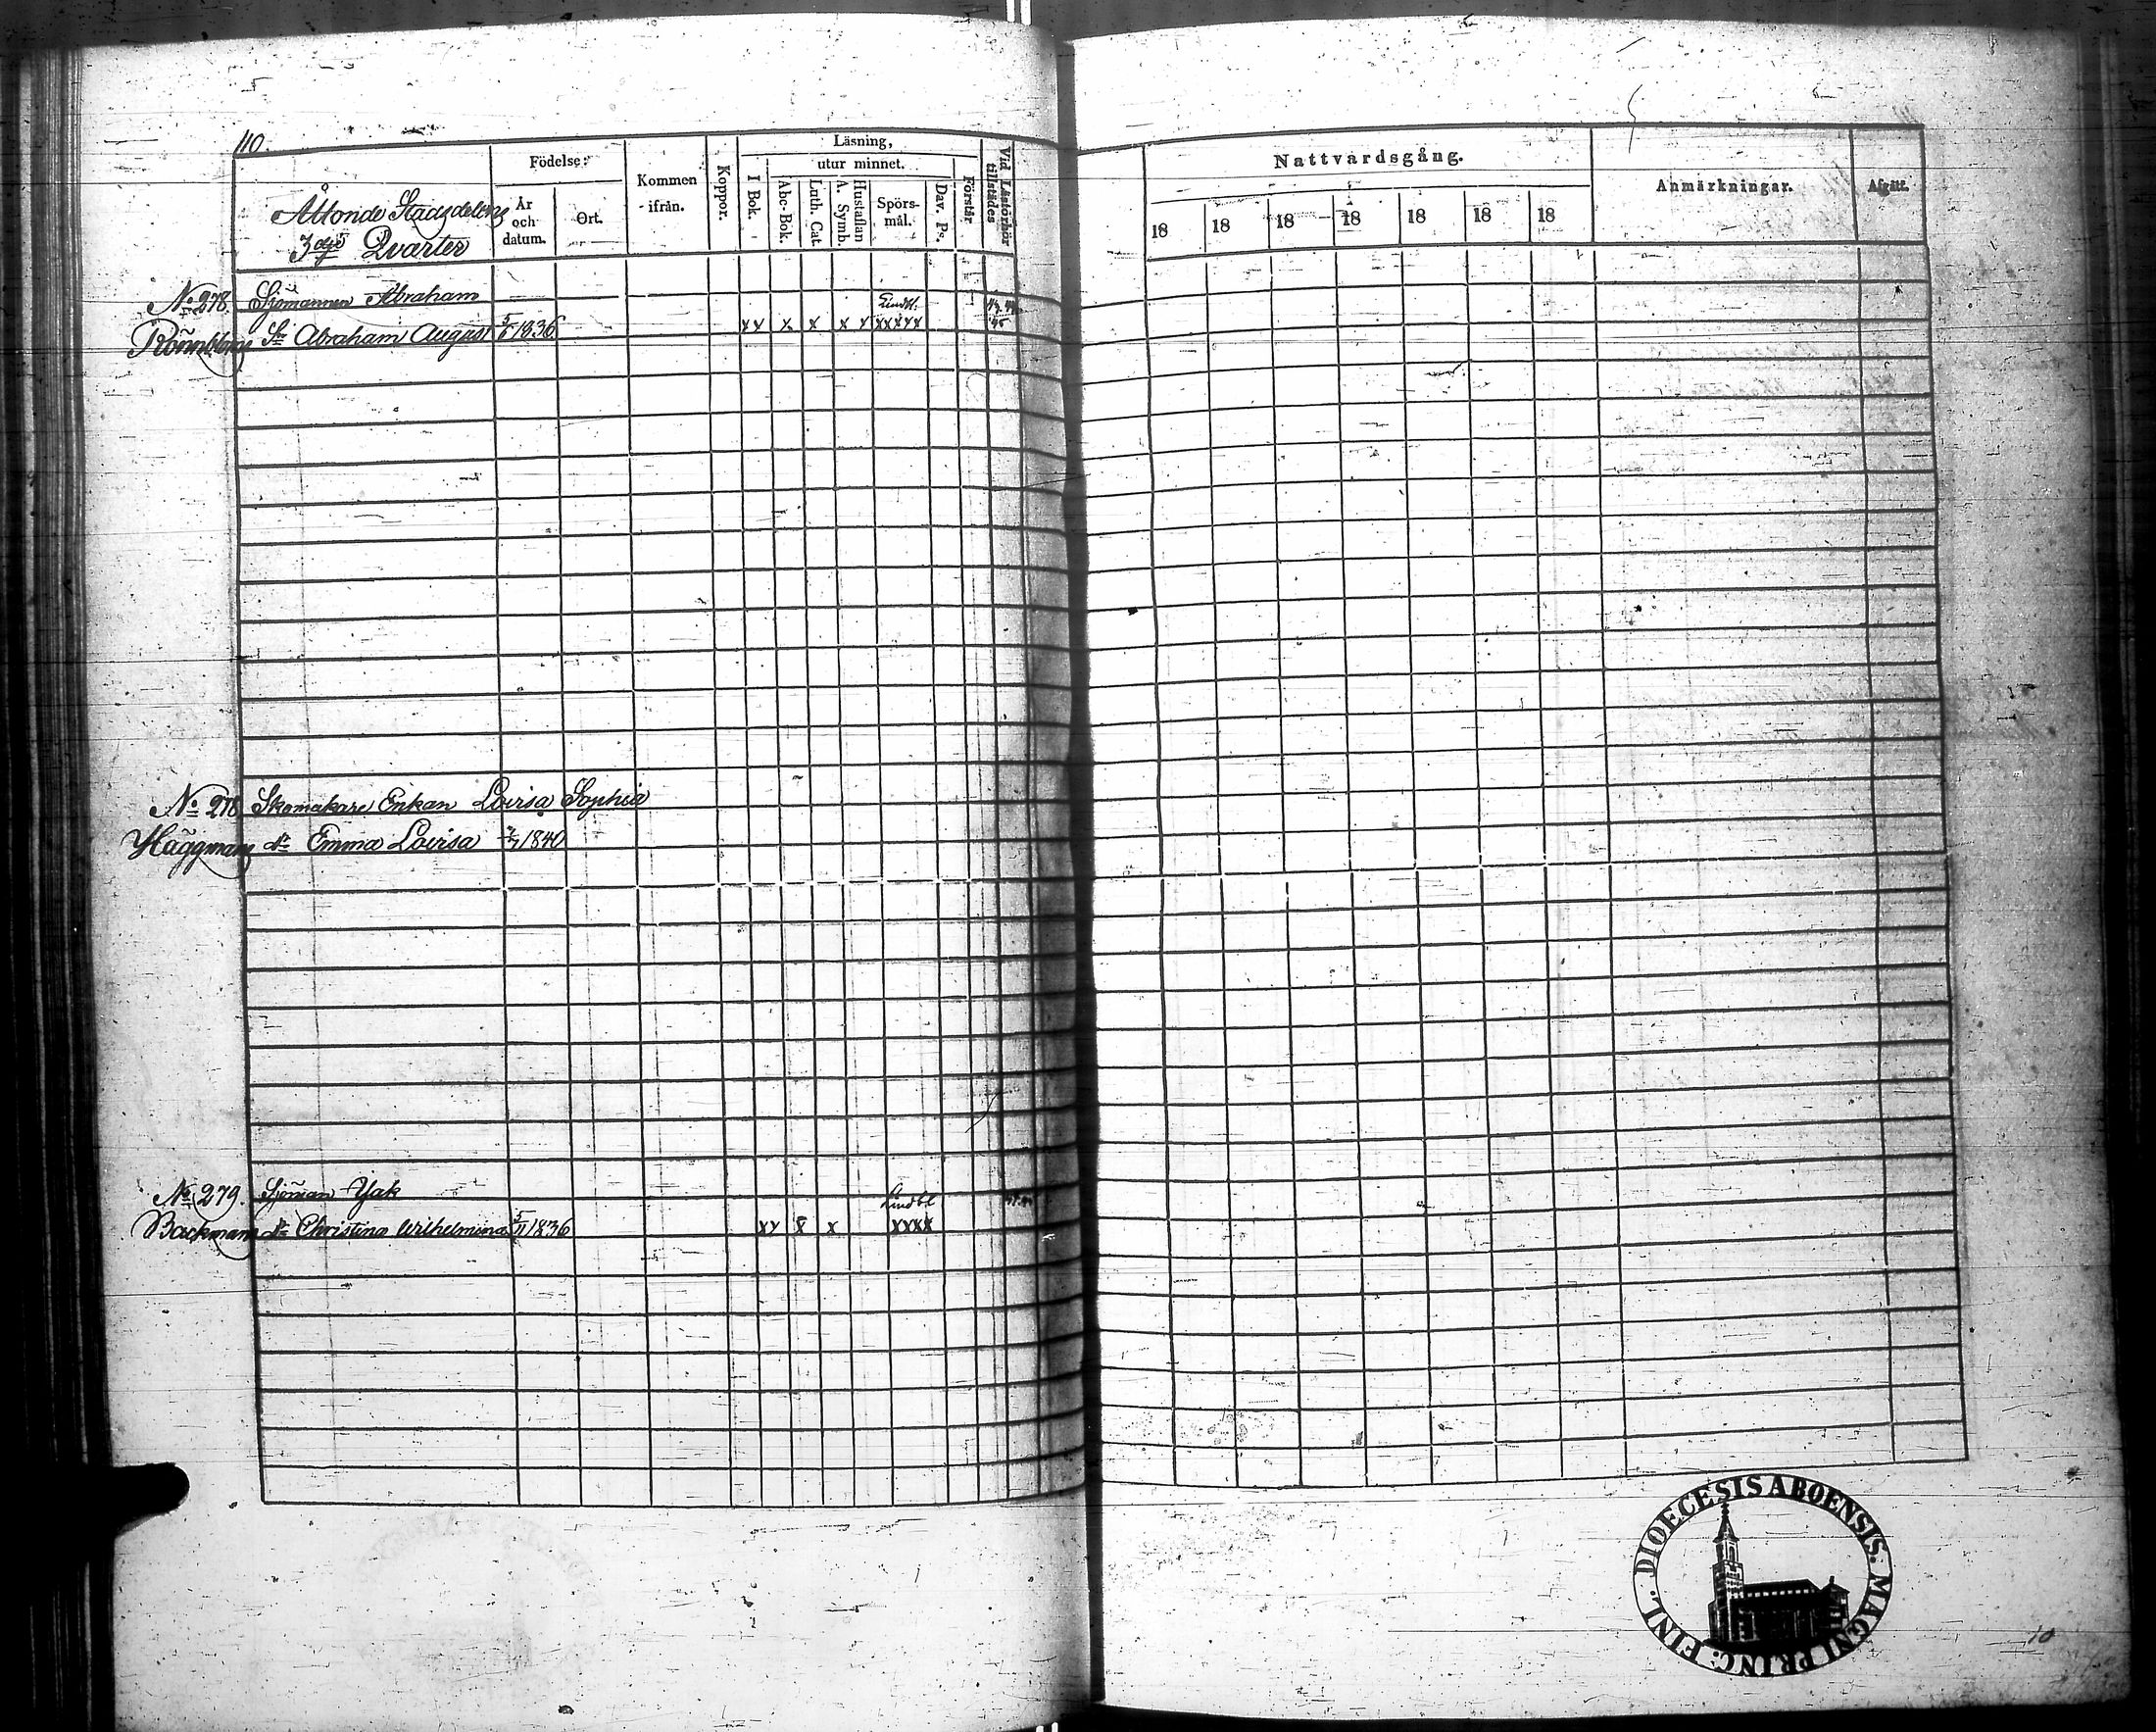 110.
Åttonde Stadsdelens
3dje Qvarter
Födelse:
År och datum.
Ort.
Kommen ifrån.
Koppor.
Läsning,
utur minnet.
I Bok.
Abc-Bok.
Luth. Cat.
A. Symb.
Hustaflan
Spörsmål.
Dav. Ps.
Förstår
Vid Läsförhör tillstädes
Nattvardsgång.
18 18 18 18 18 18 18
Anmärkningar.
Afgått.
No 278. Sjömannen Abraham
Rönnblom Sn Abraham August 1836 xx x x x x xxxxx
No 278 Skomakare Enkan Lovisa Sophia
Häggman dr Emma Lovisa 1840
No 279. Sjöman Isak
Backman dr Christina Wilhelmina 5/11 1836 xx x x xxxx
DIOECESIS ABOENSIS. MAGNI PRINC: FINL.
10